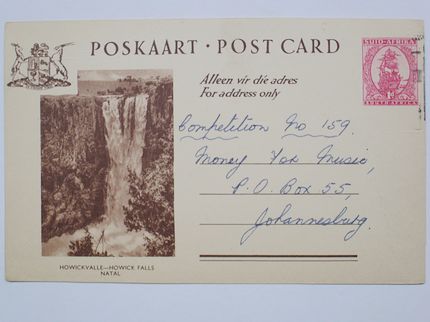 POSKAART · POST CARD
SUID-AFRIKA
SOUTH AFRICA
Alleen vir die adres
For address only
Competition No 159.
Money For Music,
P.O. Box 55,
Johannesburg.
HOWICKVALLE—HOWICK FALLS
NATAL